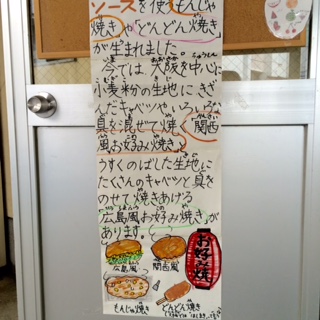 ソースを使うもんじゃ
焼きや「どんどん焼き」
が生まれました。
今では、大阪を中心に
小麦粉の生地にきざ
んだキャベツやいろいろな
具を混ぜて焼く「関西
風お好み焼き」
うすくのばした生地に
たくさんのキャベツと具を
のせて焼きあげる
「広島風お好み焼き」が
あります。
広島風
関西風
お好み焼
もんじゃ焼き
どんどん焼き